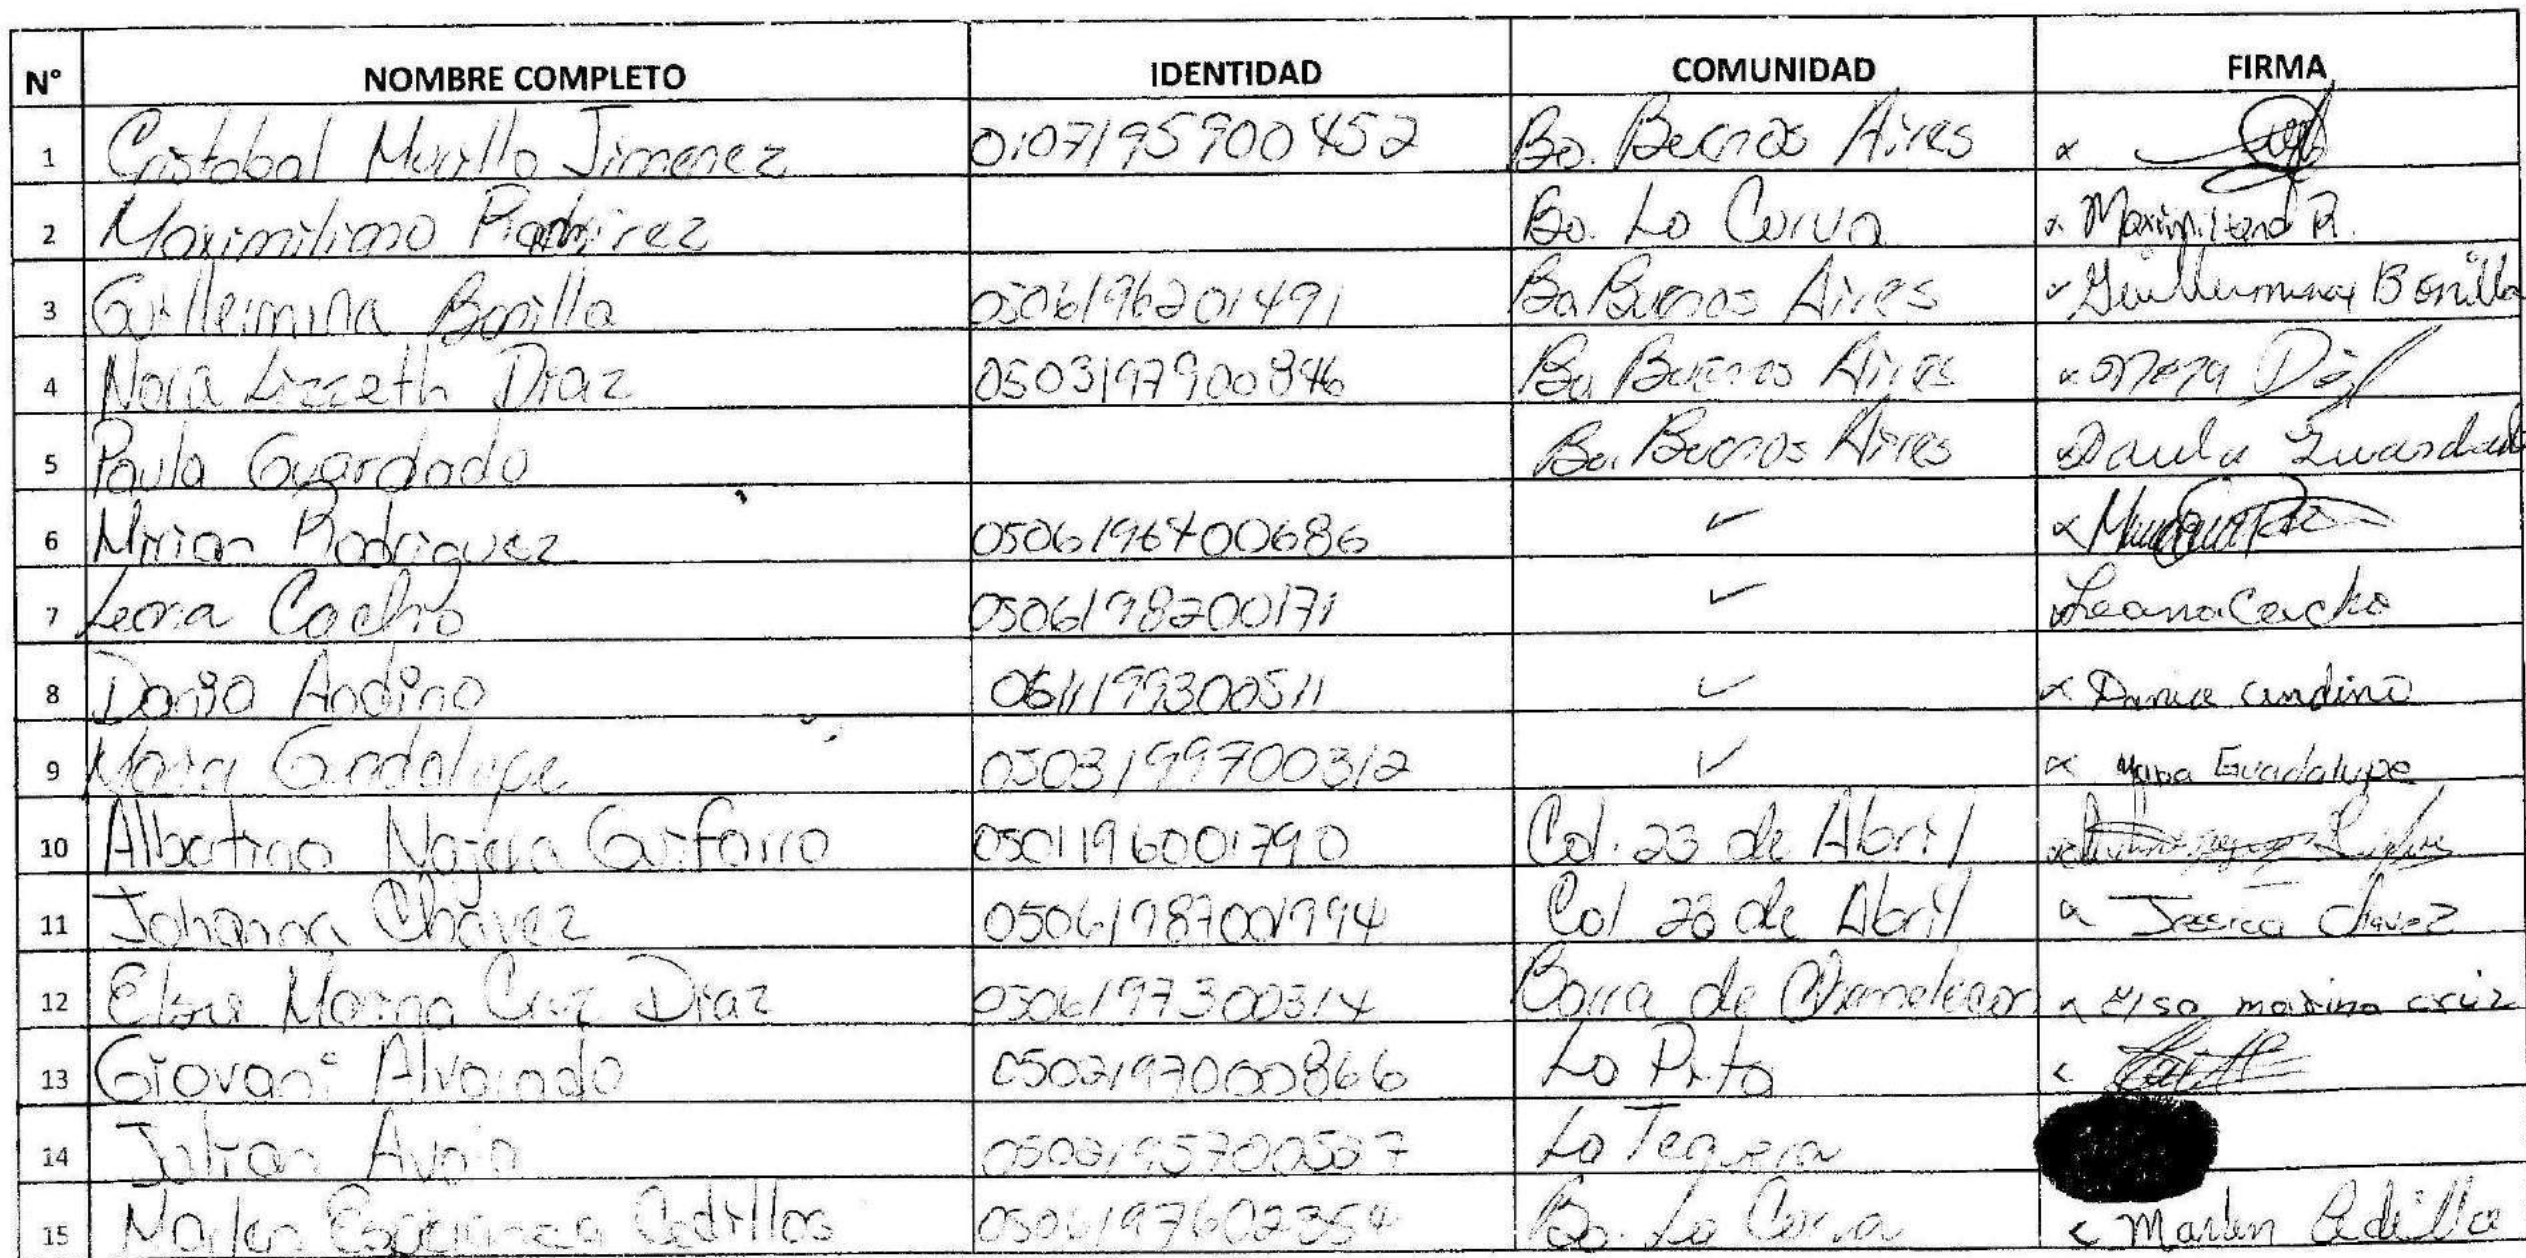 N° NOMBRE COMPLETO IDENTIDAD COMUNIDAD FIRMA
1 Cristobal Murillo Jimenez 0107195900452 Bo. Buenos Aires
2 Maximiliano Ramirez Bo. La Curva Maximiliano R.
3 Guillermina Bonilla 0506196201491 Bo Buenos Aires Guillermina Bonilla
4 Nora Lizzeth Diaz 0503197900846 Bo Buenos Aires Nora Diaz
5 Paula Guardado Bo. Buenos Aires Paula Guardado
6 Mirian Rodriguez 0506196400686 ✓
7 Leona Cacho 0506198200171 ✓ Leona Cacho
8 Dania Andino 0611199300511 ✓ Dania andino
9 Maria Guadalupe 0503199700312 ✓ Guadalupe
10 Najera Guifarro 0501196001790 Col. 23 de Abril
11 Johanna Chavez 0506198700994 Col 23 de Abril Jessica Chavez
12 Elsa Marina Cruz Diaz 0506197300314 Barra de Chamelecon Elsa marina cruz
13 Giovani Alvarado 0502197000866 La Pita
14 Julian 0502195700527 La Teguera
15 Marlen Esperanza Cedillos 0506197602354 Bo. La Curva Marlen